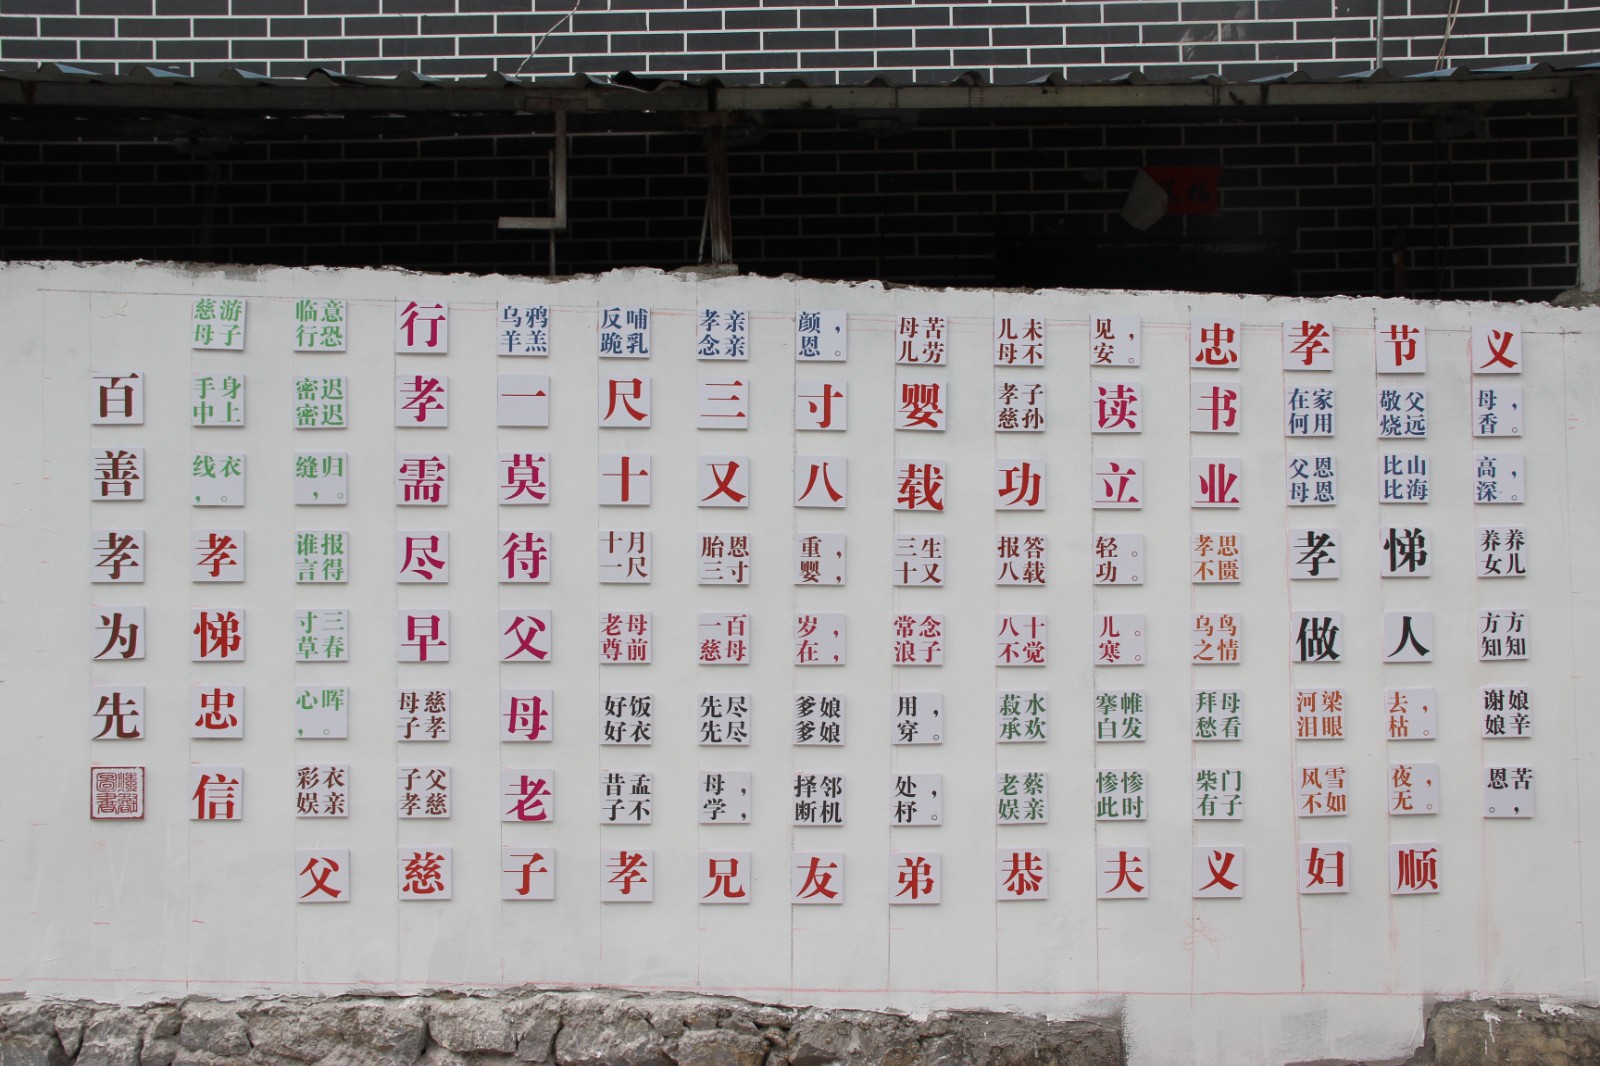 百善孝为先
慈母手中线，
游子身上衣。
孝悌忠信
临行密密缝，
意恐迟迟归。
谁言寸草心，
报得三春晖。
彩衣娱亲
行孝需尽早
母慈子孝
子孝父慈
莫待父母老
乌鸦反哺孝亲颜，
羊羔跪乳念亲恩。
一尺三寸婴
十又八载功
十月胎恩重，三生报答轻。
一尺三寸婴，十又八载功。
老母一百岁，常念八十儿。
尊前慈母在，浪子不觉寒。
好饭先尽爹娘用，
好衣先尽爹娘穿。
昔孟母，择邻处，
子不学，断机杼。
母苦儿未见，
儿劳母不安。
孝子慈孙
读书
立业
忠孝节义
在家敬父母，
何用烧远香。
父恩比山高，
母恩比海深。
孝思不匮
孝悌
乌鸟之情
做人
养儿方知娘辛苦，
养女方知谢娘恩。
菽水承欢
搴帷拜母河梁去，
白发愁看泪眼枯。
老蔡娱亲
惨惨柴门风雪夜，
此时有子不如无。
父慈子孝兄友弟恭夫义妇顺